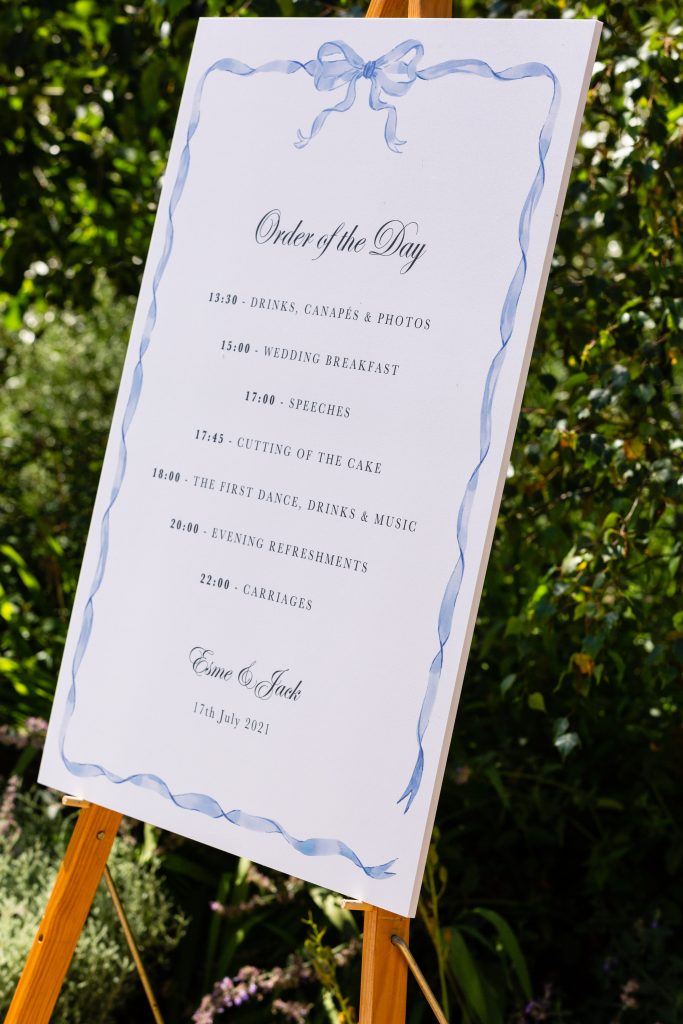 Order of the Day
13:30 - DRINKS, CANAPÉS & PHOTOS
15:00 - WEDDING BREAKFAST
17:00 - SPEECHES
17:45 - CUTTING OF THE CAKE
18:00 - THE FIRST DANCE, DRINKS & MUSIC
20:00 - EVENING REFRESHMENTS
22:00 - CARRIAGES
Esme & Jack
17th July 2021